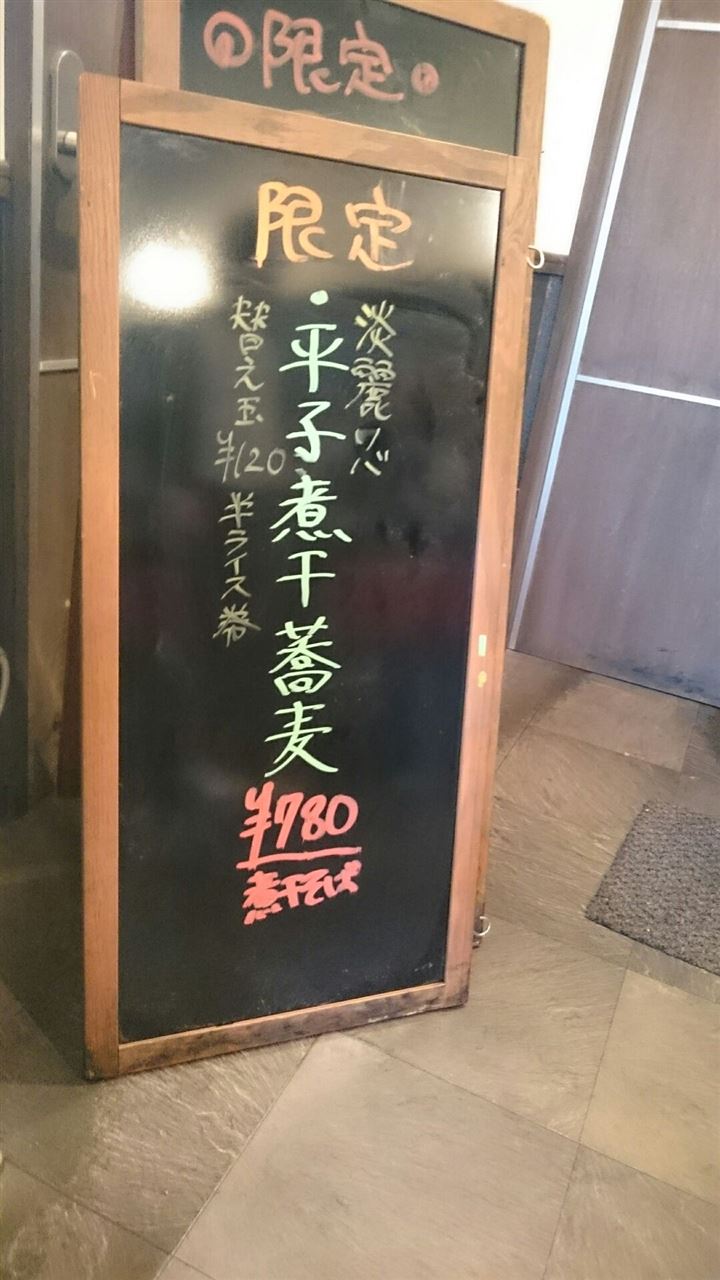 限定
限定
淡麗
・平子煮干蕎麦
¥780
煮干そば
替え玉
¥120
半ライス券